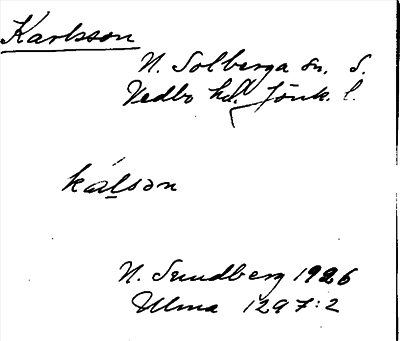 Karlsson
N. Solberga sn. S.
Vedbo hd. Jönk. l.
kálsən
N. Sundberg 1926
Ulma 1297:2